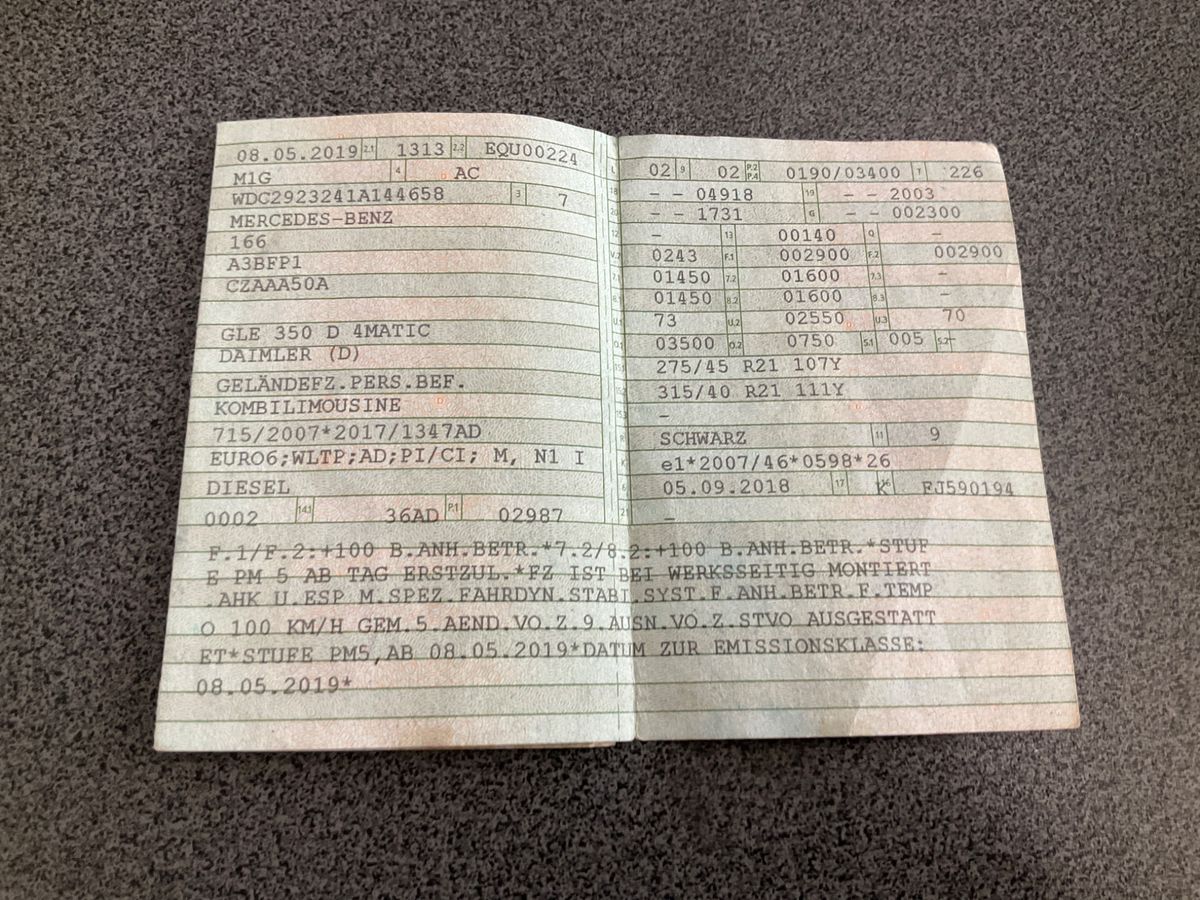 08.05.2019 2.1 1313 2.2 EQU00224
M1G 4 AC
WDC2923241A144658 3 7
MERCEDES-BENZ
166
A3BFP1
CZAAA50A
GLE 350 D 4MATIC
DAIMLER (D)
GELÄNDEFZ.PERS.BEF.
KOMBILIMOUSINE
715/2007*2017/1347AD
EURO6;WLTP;AD;PI/CI; M, N1 I
DIESEL
0002 14.1 36AD P.1 02987
L 02 9 02 P.2 P.4 0190/03400 T 226
18 - - 04918 19 - - 2003
20 - - 1731 G - - 002300
12 - 13 00140 Q -
V.7 0243 F.1 002900 F.2 002900
7.1 01450 7.2 01600 7.3 -
8.1 01450 8.2 01600 8.3 -
U.1 73 U.2 02550 U.3 70
O.1 03500 O.2 0750 S.1 005 S.2 -
275/45 R21 107Y
315/40 R21 111Y
-
R SCHWARZ 11 9
K e1*2007/46*0598*26
6 05.09.2018 17 K 16 FJ590194
21 -
F.1/F.2:+100 B.ANH.BETR.*7.2/8.2:+100 B.ANH.BETR.*STUF
E PM 5 AB TAG ERSTZUL.*FZ IST BEI WERKSSEITIG MONTIERT
.AHK U.ESP M.SPEZ.FAHRDYN.STABI.SYST.F.ANH.BETR.F.TEMP
O 100 KM/H GEM.5.AEND.VO.Z.9.AUSN.VO.Z.STVO AUSGESTATT
ET*STUFE PM5,AB 08.05.2019*DATUM ZUR EMISSIONSKLASSE:
08.05.2019*